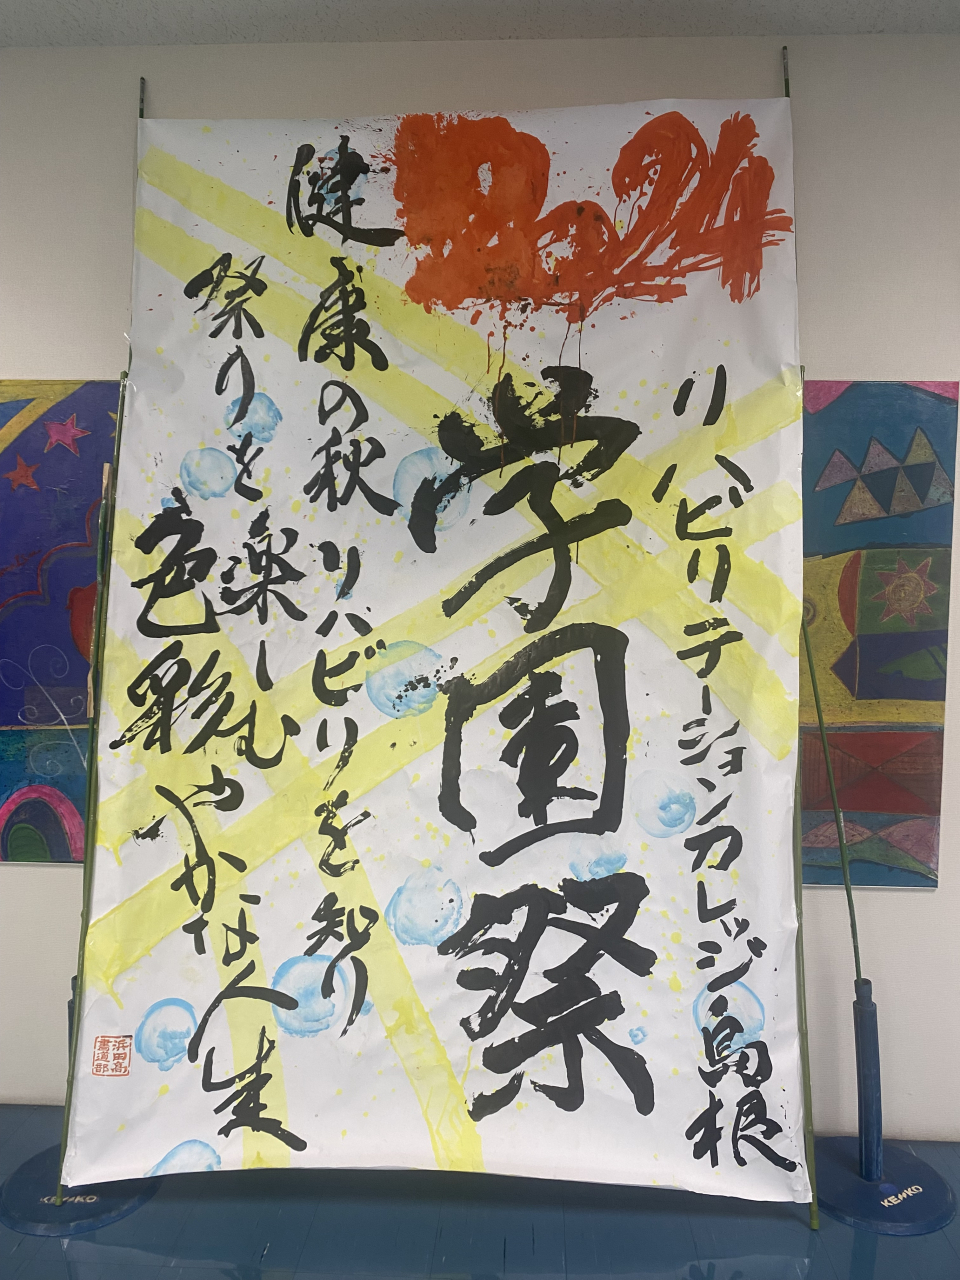 2024
リハビリテーションカレッジ島根
学園祭
健康の秋リハビリを知り
祭りを楽しむ
色彩やかな人生
浜田高
書道部
KENKO
KENKO